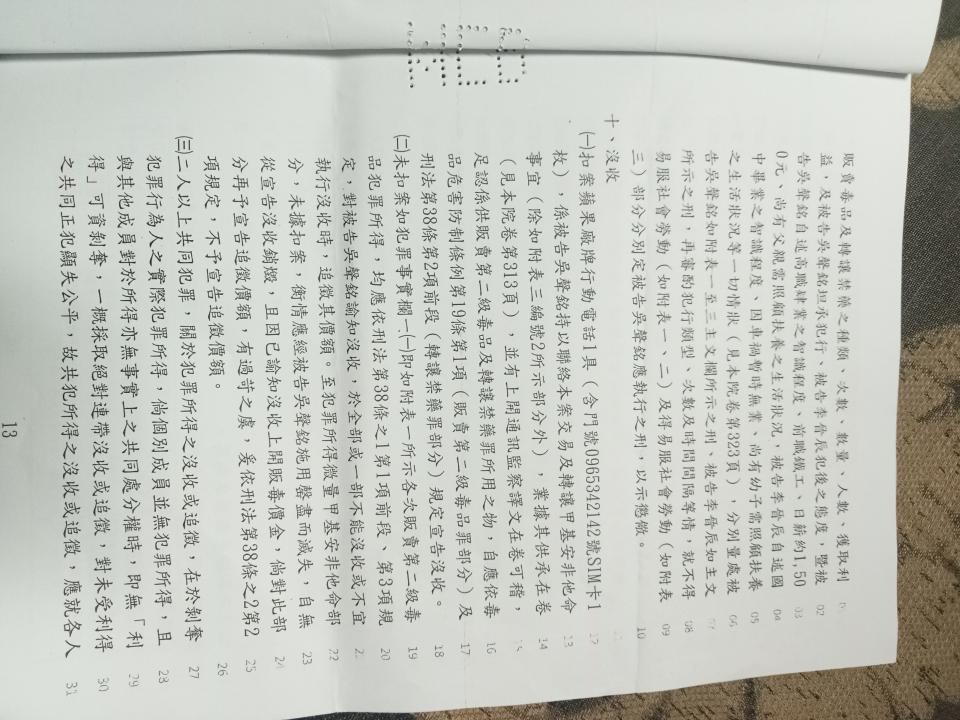 販賣毒品及轉讓禁藥之種類、次數、數量、人數、獲取利
益，及被告吳聲銘坦承犯行、被告李晉辰犯後之態度，暨被
告吳聲銘自述高職肄業之智識程度、前職鐵工、日薪約1,50
0元、尚有父親需照顧扶養之生活狀況，被告李晉辰自述國
中畢業之智識程度、因車禍暫時無業、尚有幼子需照顧扶養
之生活狀況等一切情狀（見本院卷第323頁），分別量處被
告吳聲銘如附表一至三主文欄所示之刑、被告李晉辰如主文
所示之刑，再審酌犯行類型、次數及時間間隔等情，就不得
易服社會勞動（如附表一、二）及得易服社會勞動（如附表
三）部分分別定被告吳聲銘應執行之刑，以示懲儆。
十、沒收
㈠扣案蘋果廠牌行動電話1具（含門號0965342142號SIM卡1
枚），係被告吳聲銘持以聯絡本案交易及轉讓甲基安非他命
事宜（除如附表三編號2所示部分外），業據其供承在卷
（見本院卷第313頁），並有上開通訊監察譯文在卷可稽，
足認係供販賣第二級毒品及轉讓禁藥罪所用之物，自應依毒
品危害防制條例第19條第1項（販賣第二級毒品罪部分）及
刑法第38條第2項前段（轉讓禁藥罪部分）規定宣告沒收。
㈡未扣案如犯罪事實欄一㈠即如附表一所示各次販賣第二級毒
品犯罪所得，均應依刑法第38條之1第1項前段、第3項規
定，對被告吳聲銘諭知沒收，於全部或一部不能沒收或不宜
執行沒收時，追徵其價額。至犯罪所得微量甲基安非他命部
分，未據扣案，衡情應經被告吳聲銘施用罄盡而滅失，自無
從宣告沒收銷燬，且因已諭知沒收上開販毒價金，倘對此部
分再予宣告追徵價額，有過苛之虞，爰依刑法第38條之2第2
項規定，不予宣告追徵價額。
㈢二人以上共同犯罪，關於犯罪所得之沒收或追徵，在於剝奪
犯罪行為人之實際犯罪所得，倘個別成員並無犯罪所得，且
與其他成員對於所得亦無事實上之共同處分權時，即無「利
得」可資剝奪，一概採取絕對連帶沒收或追徵，對未受利得
之共同正犯顯失公平，故共犯所得之沒收或追徵，應就各人
02
03
04
05
06
07
08
09
10
12
13
14
16
17
18
19
20
22
23
24
25
26
27
28
29
30
31
13